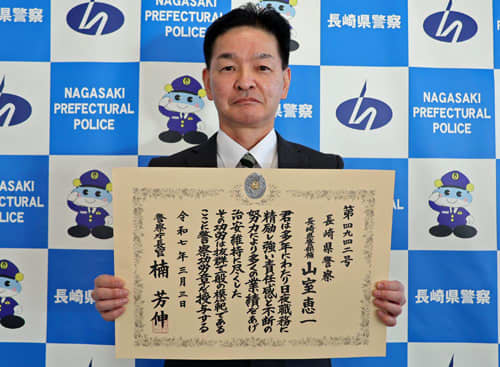 長崎県警察
NAGASAKI
PREFECTURAL
POLICE
長崎県警察
長崎県警察
NAGASAKI
PREFECTURAL
POLICE
NAGASAKI
PREFECTURAL
POLICE
長崎県警察
長崎県警察
第四九四二号
長崎県警察
長崎県警部補
山室恵一
君は多年にわたり日夜職務に
精励し強い責任感と不断の
努力により多くの業績をあげ
治安維持に尽くした
その功労は抜群で一般の模範である
ここに警察功労章を授与する
令和七年三月三日
警察庁長官
楠芳伸